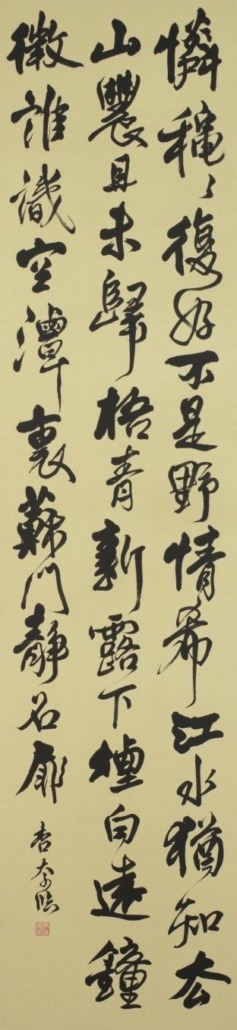 憐穐々復好不是野情希江水猶知去
山農且未歸梧青新露下煙白遠鐘
微誰識空潭裏蘇門靜石扉